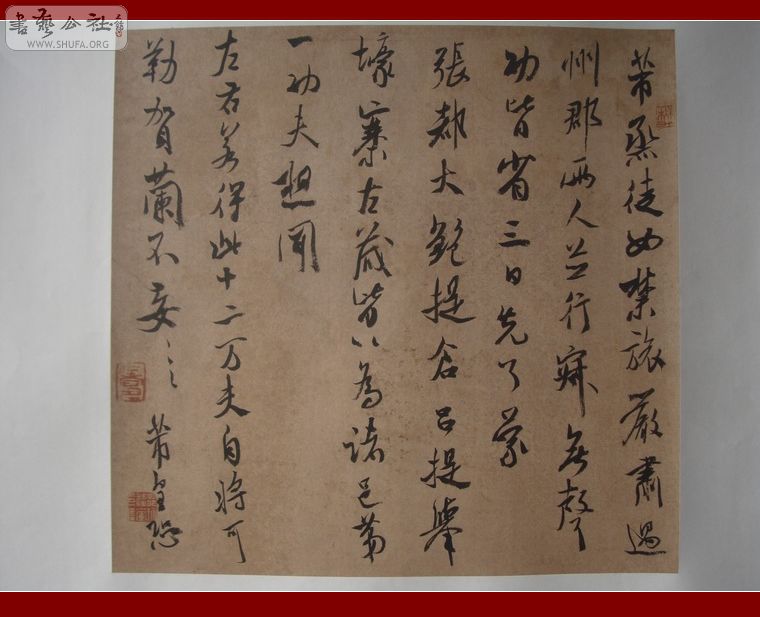 書藝公社
WWW.SHUFA.ORG
芾烝徒如禁旅嚴肅過
州郡兩人並行寂無聲
功皆省三日先了蒙
張都大鮑提倉呂提舉
壕寨左藏皆以為諸邑第
一功夫想聞
左右若得此十二万夫自將可
勒賀蘭不妄〻〻 芾皇恐